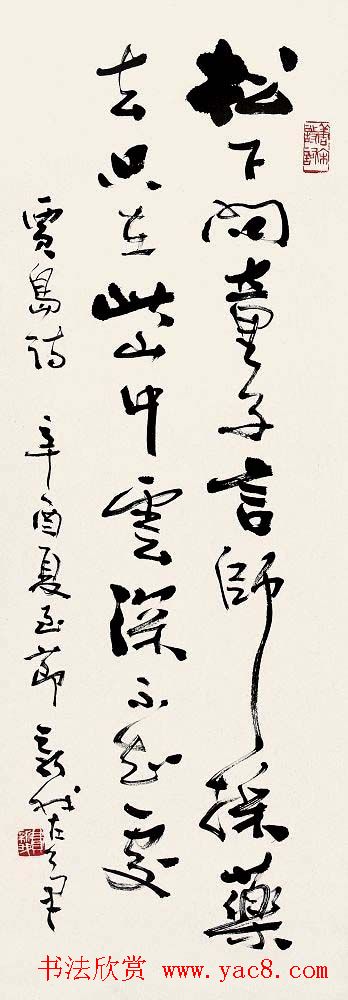 松下問童子言師採藥
去只在此山中雲深不知處
賈島詩 辛酉夏至節 新我左筆
书法欣赏 www.yac8.com